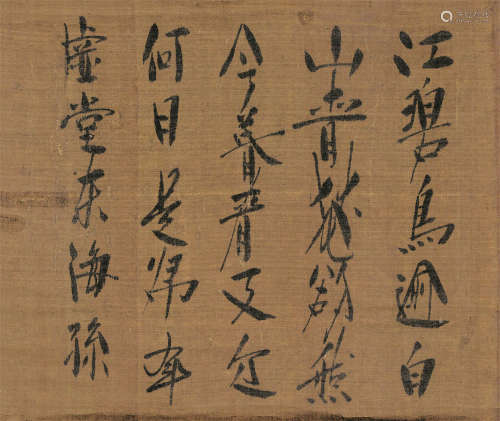 江碧鳥逾白
山青花欲然
今春看又过
何日是歸年
虚堂东海孫